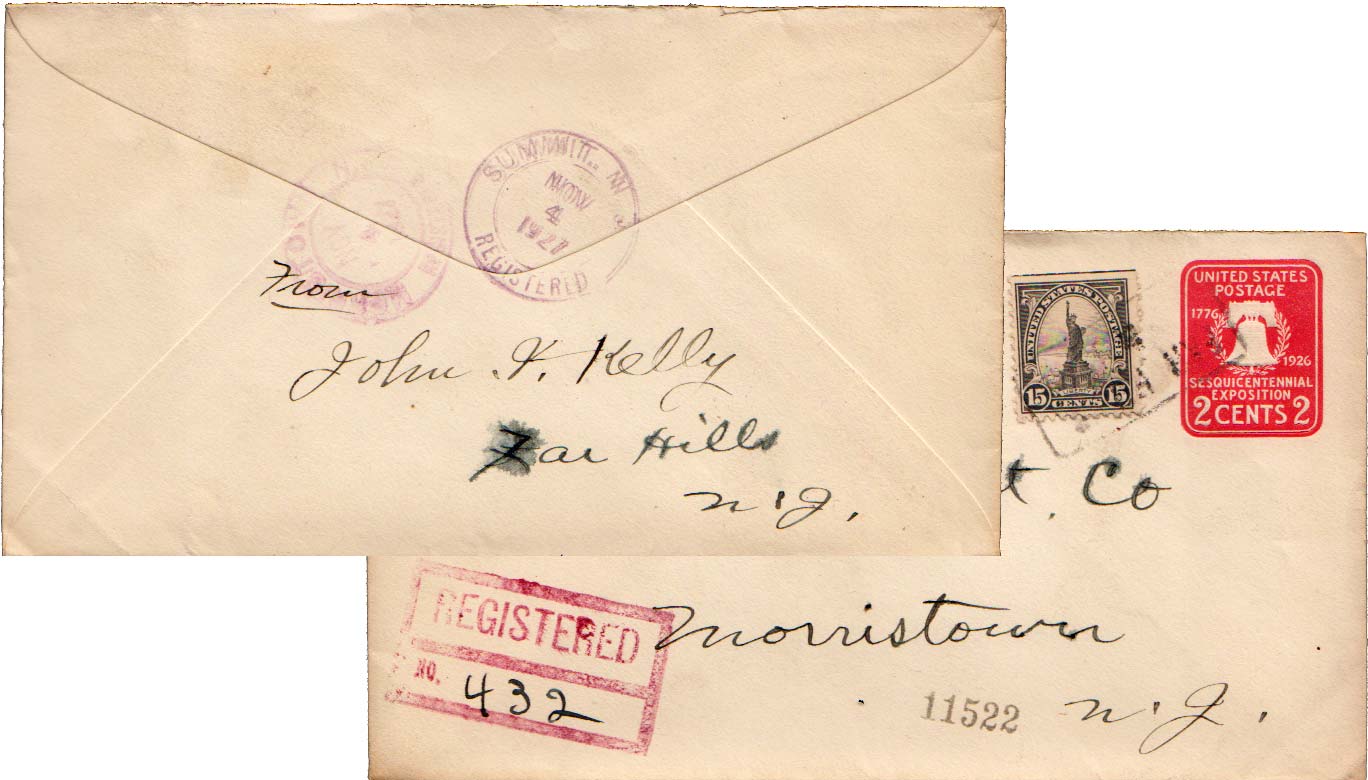 SUMMIT, N. J.
NOV
4
1927
REGISTERED
From
John F. Kelly
Far Hills
N. J.
UNITED STATES POSTAGE
15 15
LIBERTY
CENTS
UNITED STATES
POSTAGE
1776
1926
SESQUICENTENNIAL
EXPOSITION
2 CENTS 2
t. Co
REGISTERED
NO. 432
Morristown
11522
N. J.